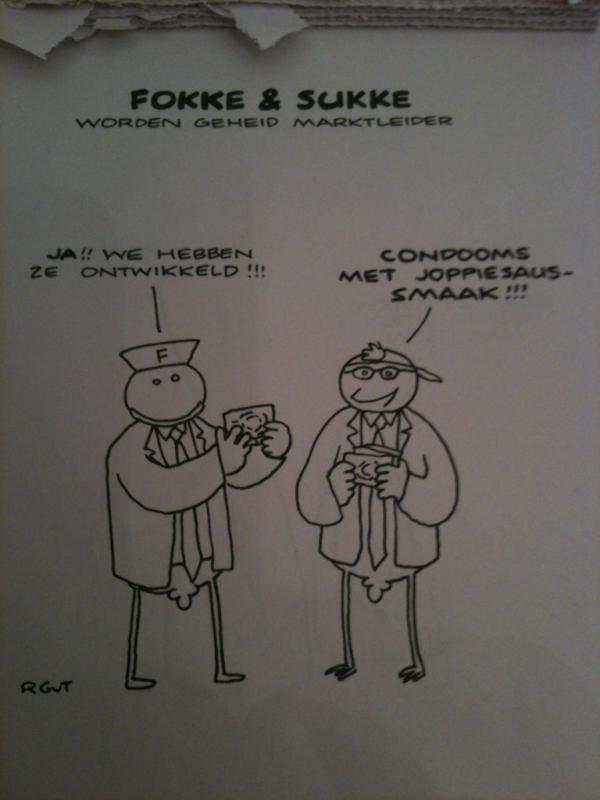 FOKKE & SUKKE
WORDEN GEHEID MARKTLEIDER
JA!! WE HEBBEN
ZE ONTWIKKELD!!!
CONDOOMS
MET JOPPIESAUS-
SMAAK!!!
F
RGvT